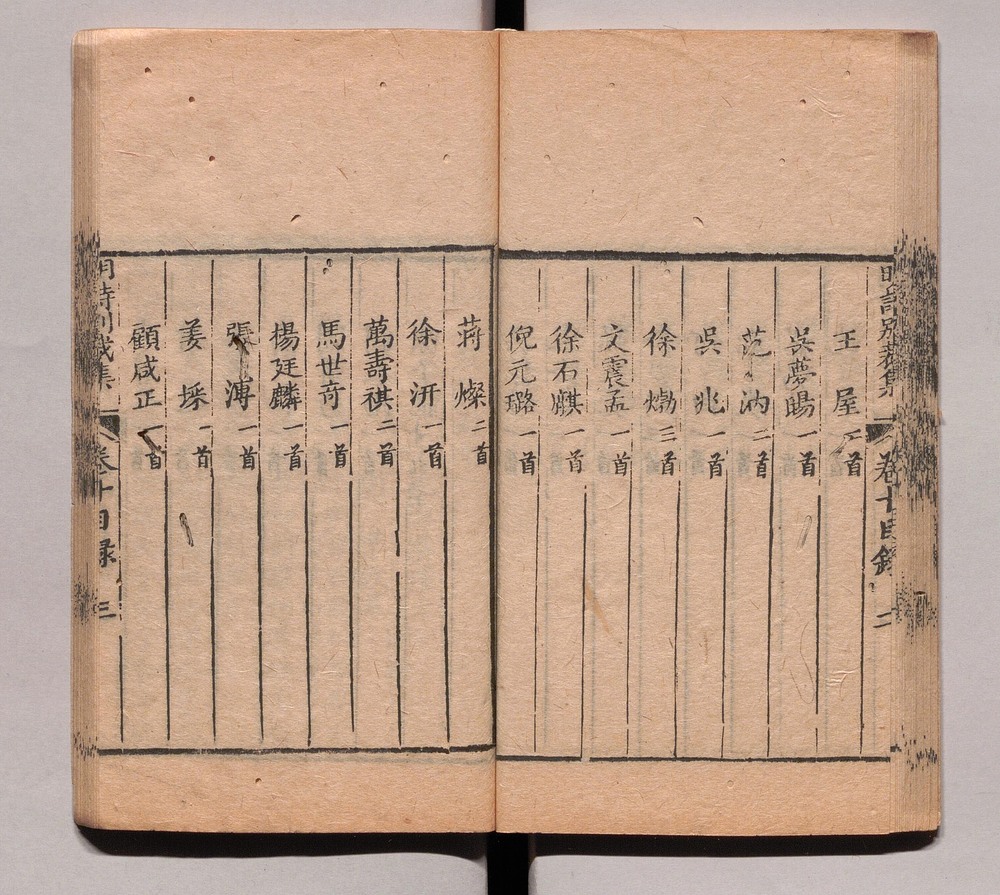 明詩別裁集 卷十目錄 二
王屋 二首
吳夢暘 一首
范汭 二首
吳兆 一首
徐𤊹 三首
文震孟 一首
徐石麒 一首
倪元璐 一首
蔣燦 二首
徐汧 一首
萬壽祺 二首
馬世奇 一首
楊廷麟 一首
張溥 一首
姜埰 一首
顧咸正 一首
明詩別裁集 卷十目録 三